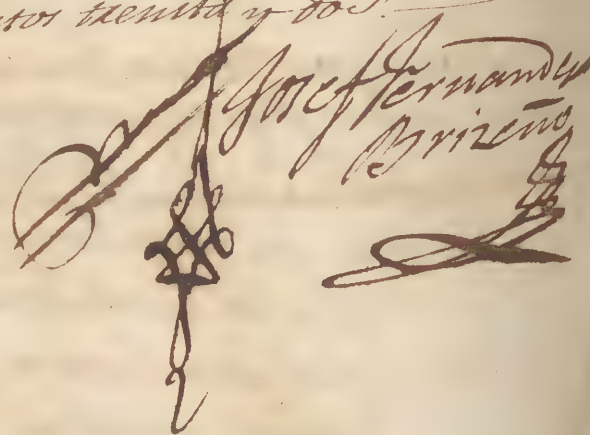 tos treinta y dos.
Josef Fernandez
Brizeño